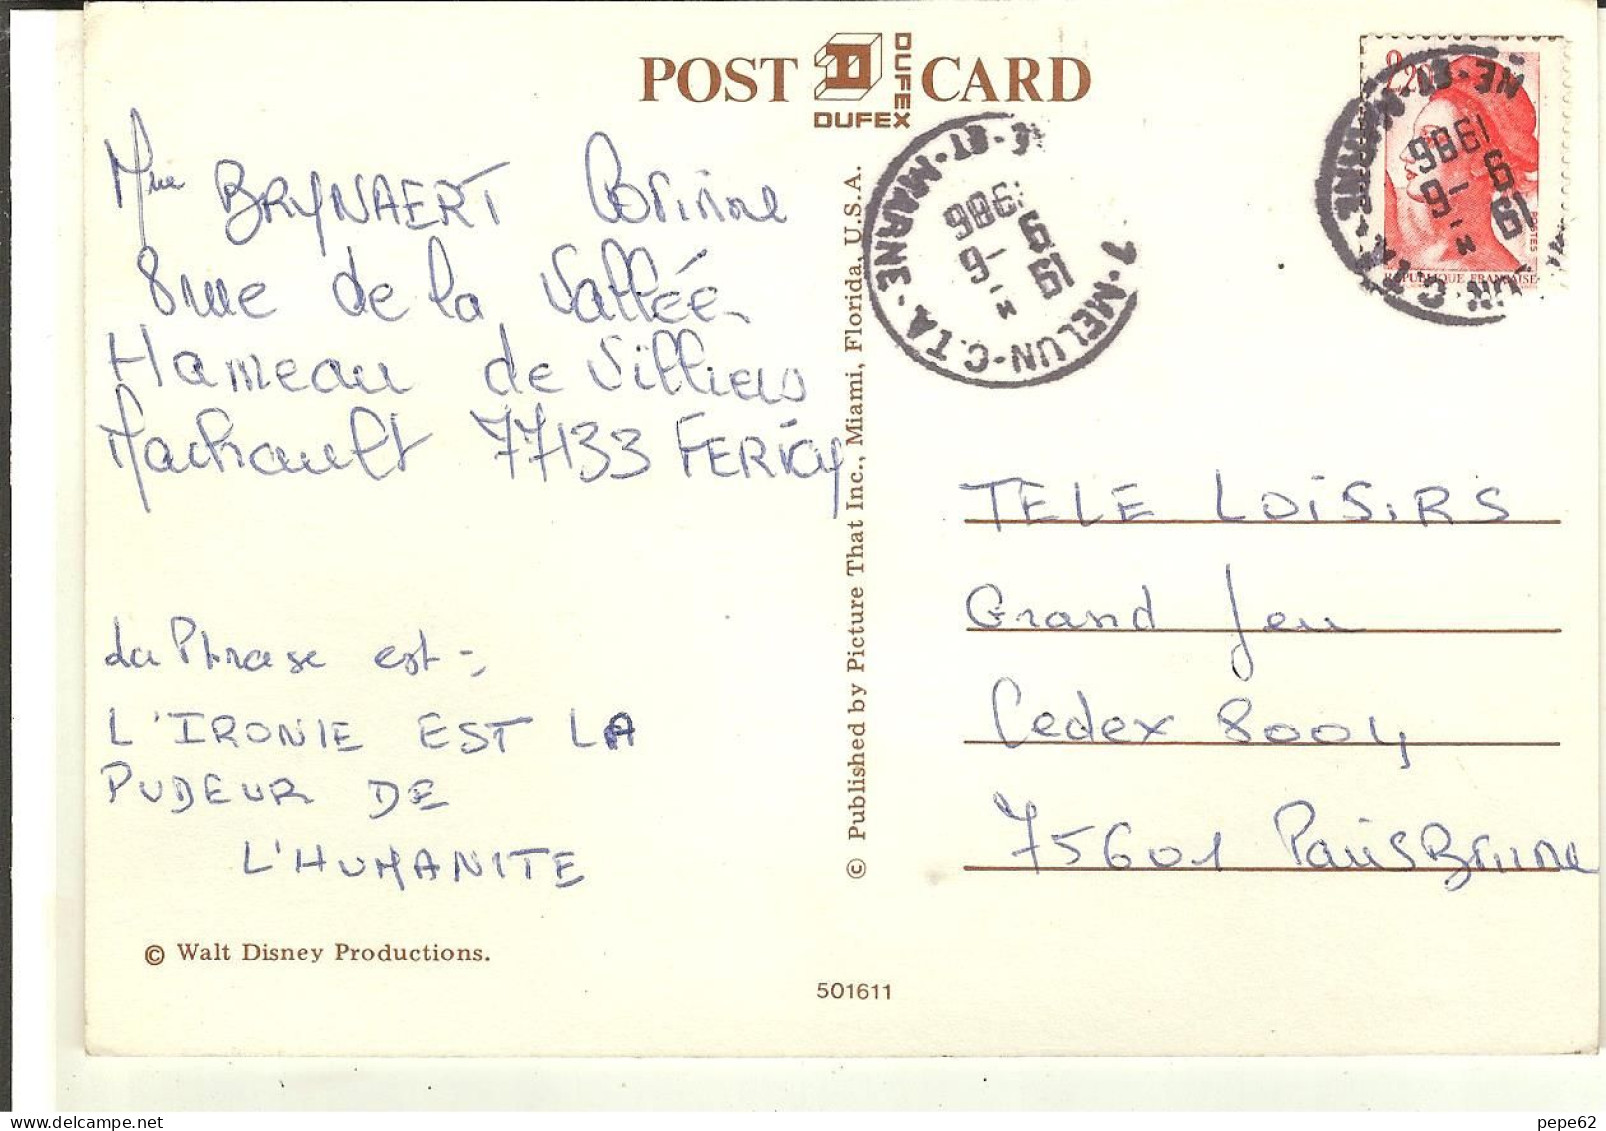 POST CARD
DUFEX
DUFEX
Mme BRYNAERT Corinne
8 rue de la Vallée
Hameau de Villiers
Machault 77133 FERICY
La Phrase est :
L'IRONIE EST LA
PUDEUR DE
L'HUMANITE
© Walt Disney Productions.
501611
© Published by Picture That Inc., Miami, Florida, U.S.A.
MELUN-C.T.A.
ET-MARNE
19 -6
1986
2,20
REPUBLIQUE FRANÇAISE
POSTES
TELE LOISIRS
Grand Jeu
Cedex 8004
75601 Paris Brune
pepe62